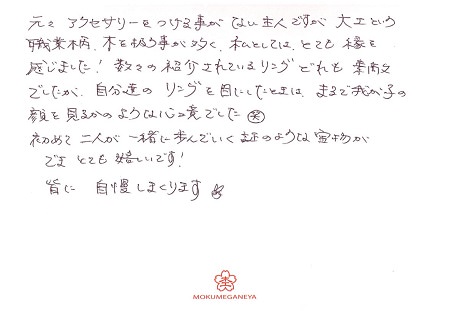 元々アクセサリーをつける事がない主人ですが大工という
職業柄、木を扱う事が多く、私としては、とても縁を
感じました！数々の紹介されているリングどれも素敵
でしたが、自分達のリングを目にしたときは、まるで我が子の
顔を見るかのような心境でした㊤
初めて二人が一緒に歩んでいく証のような宝物が
でき とても嬉しいです！
皆に 自慢しまくります
MOKUMEGANEYA